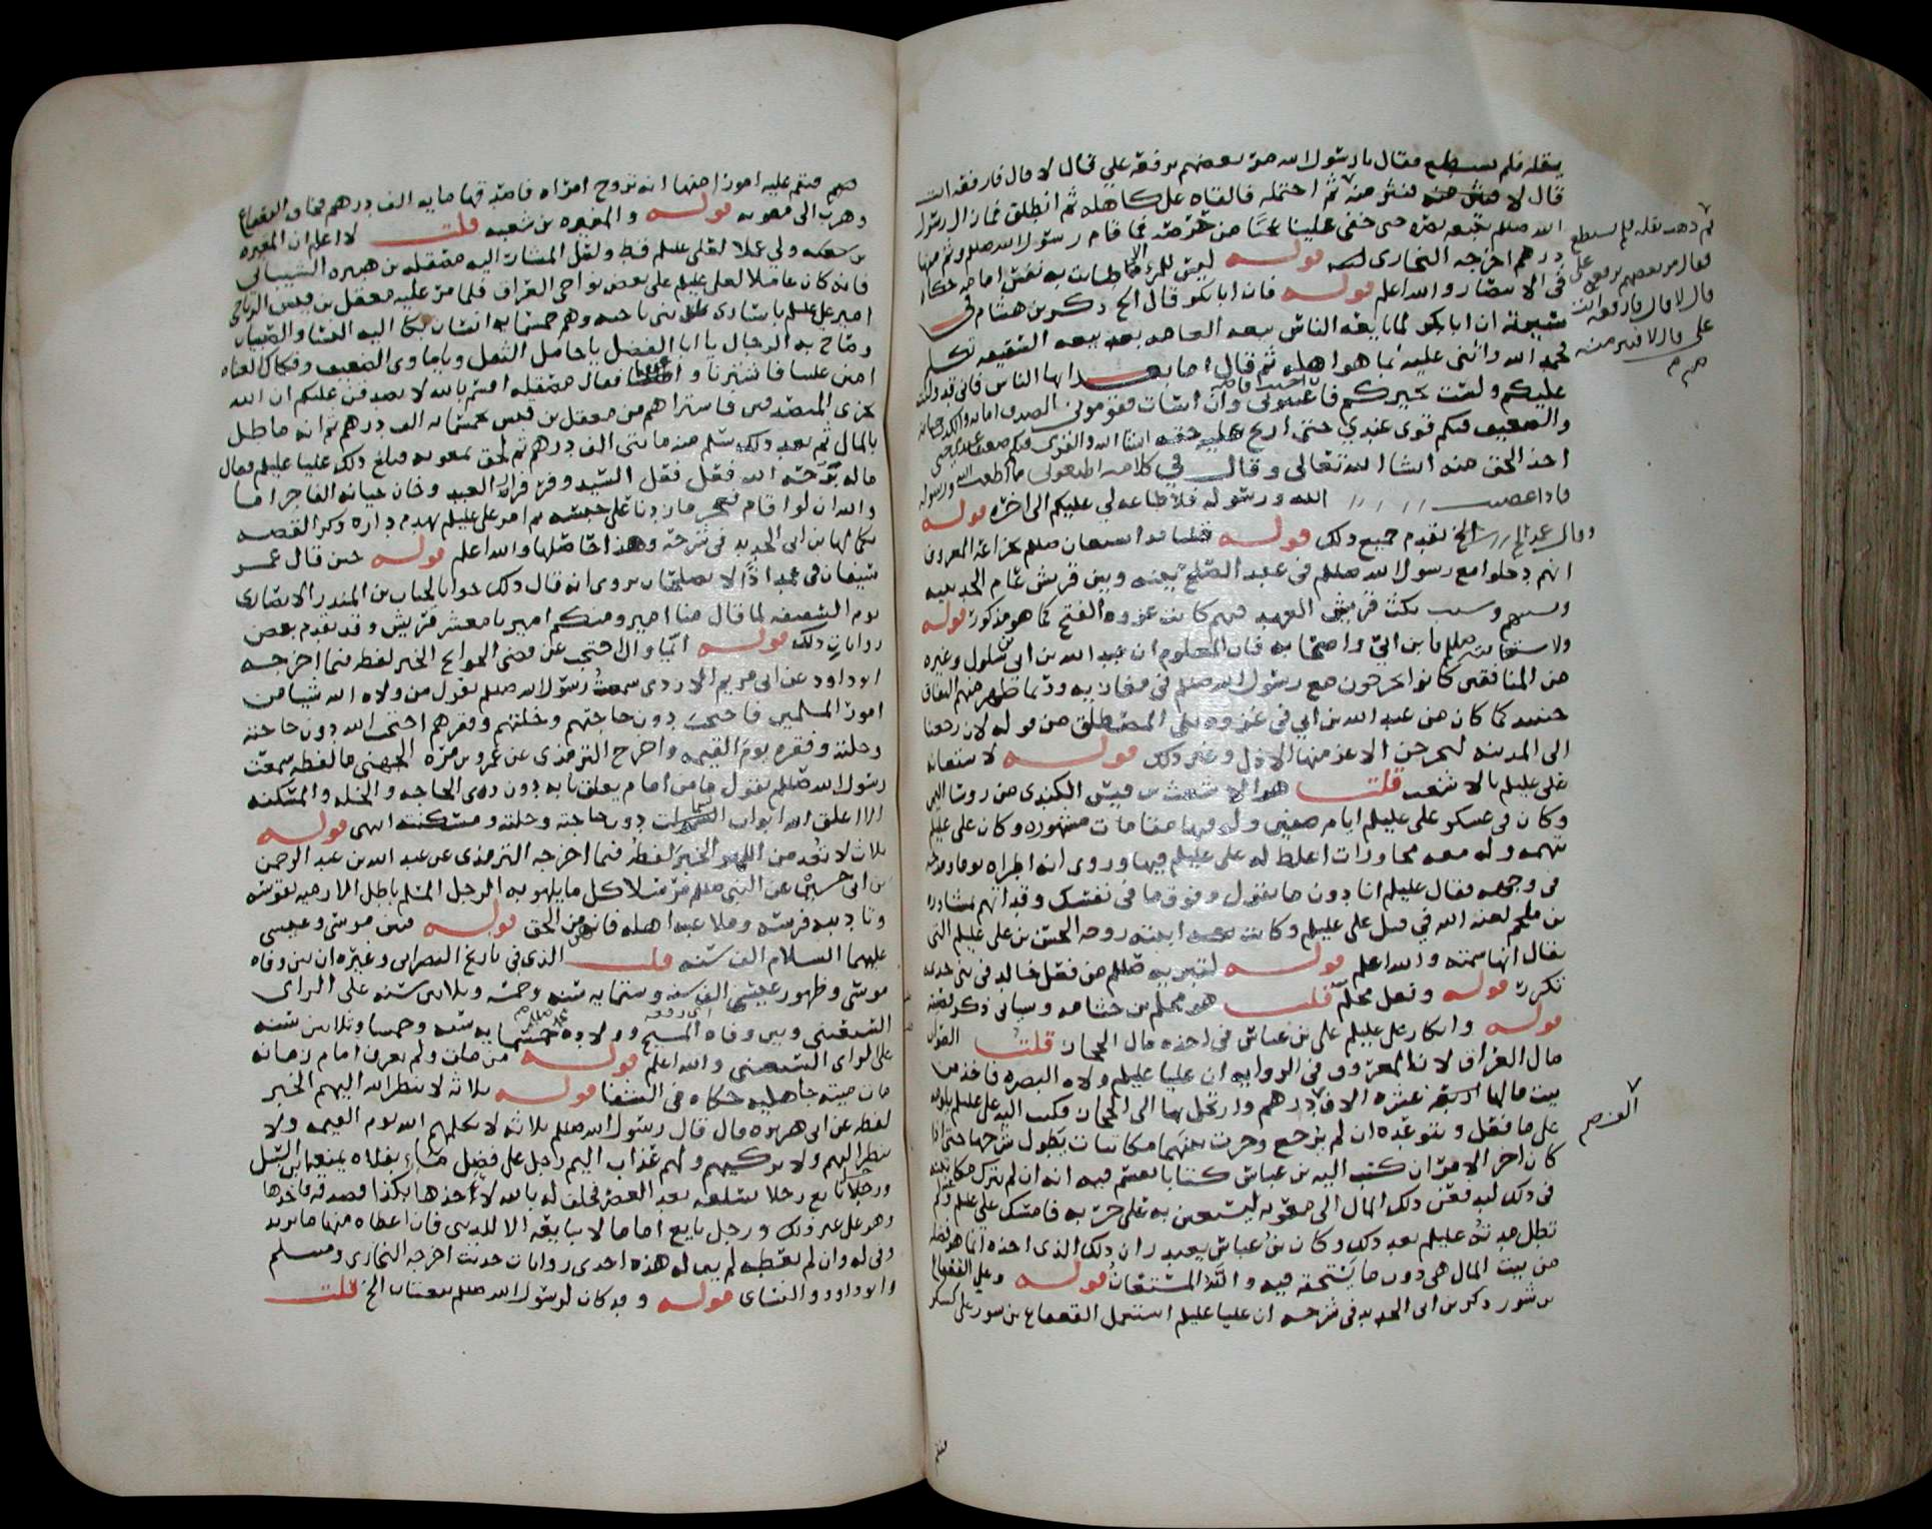 يقله فلم يستطع فقال يا رسول الله مر بعضهم يرفعه علي قال لا قال فارفعه انت
قال لا فنثر منه ثم احتمله فالقاه على كاهله ثم انطلق فما زال رسول
الله صلعم يتبعه بصره حتى خفي علينا عجبا من حرصه فما قام رسول الله صلعم وثم منها
درهم اخرجه البخاري قوله ليس للمرء الا ما طابت به نفس امامه
في الانتصار والله اعلم قوله فان ابا بكر قال الخ ذكر بن هشام في
سيرته ان ابا بكر لما بايعه الناس بيعه العامه بعد بيعه السقيفه تكلم
فحمد الله واثنى عليه بما هو اهله ثم قال اما بعد ايها الناس فاني قد وليت
عليكم ولست بخيركم فان احسنت فاعينوني وان اسات فقوموني الصدق امانه والكذب خيانه
والضعيف فيكم قوي عندي حتى اريح عليه حقه انشا الله والقوي فيكم ضعيف عندي حتى
اخذ الحق منه انشا الله تعالى وقال في كلامه اطيعوني ما اطعت الله ورسوله
فاذا عصيت الله ورسوله فلا طاعه لي عليكم الى اخره قوله
وقال عمر الخ تقدم جميع ذلك قوله قلنا قد استعان صلعم بخزاعه المعروف
انهم دخلوا مع رسول الله صلعم في عقد الصلح بينه وبين قريش عام الحديبيه
وبسببهم وسبب نكث قريش العهد فيهم كانت غزوه الفتح كما هو مذكور قوله
ولاستعانته صلعم بابن ابي واصحابه فان المعلوم ان عبد الله بن ابي بن سلول وغيره
من المنافقين كانوا يخرجون مع رسول الله صلعم في مغازيه وربما ظهر منهم النفاق
حينئذ كما كان من عبد الله بن ابي في غزوه بني المصطلق من قوله لان رجعنا
الى المدينه ليخرجن الاعز منها الاذل وغير ذلك قوله لاستعانه
علي عليلم بالاشعث قلت هو الاشعث بن قيس الكندي من روسا
وكان في عسكر علي عليلم ايام صفين وله فيها مقامات مشهوره وكان علي عليلم
يتهمه وله معه محاورات اغلظ له علي عليلم فيها وروي انه اطراه يوما ومدحه
في وجهه فقال عليلم انا دون ما تقول وفوق ما في نفسك وقد اتهم بمشاوره
بن ملجم لعنه الله في قتل علي عليلم وكانت ابنته زوجه الحسن بن علي عليلم التي
يقال انها سمته والله اعلم قوله لتبريه صلعم من فعل خالد في بني جذيمه
تكررت قوله وفعل محلم قلت هو محلم بن جثامه وسياتي ذكر
قوله وانكار علي عليلم على بن عباس في اخذه مال الحجاز قلت الصواب
مال العراق لان المعروف في الروايه ان عليا عليلم ولاه البصره فاخذ من
بيت مالها الاف درهم وارتحل بها الى الحجاز فكتب اليه علي عليلم يلومه
على ما فعل ويتوعده ان لم يرجع وجرت بينهما مكاتبات يطول شرحها حتى اذا
كان اخر الامر ان كتب اليه بن عباس كتابا يقسم فيه انه ان لم يترك مكاتبته
في ذلك ليدفعن ذلك المال الى معويه ليستعين به على حربه فامسك علي عليلم ولم
تطل مدته عليلم بعد ذلك وكان بن عباس يعتذر ان ذلك الذي اخذه انما هو
من بيت المال هي دون ما يستحقه فيه والله المستعان قوله وعلى القعقاع
بن شور ذكر بن ابي الحديد في شرحه ان عليا عليلم استعمل القعقاع بن شور على كسكر
ثم ذهب يقله فلم يستطع
فقال مر بعضهم يرفعه علي
قال لا قال فارفعه انت
علي قال لا فنثر منه
صح
فنقم عليه امورا منها انه تزوج امراه فاصدقها مايه الف درهم فخاف القعقاع
وهرب الى معويه قوله والمغيره بن شعبه قلت لا اعلم ان المغيره
بن شعبه ولي عملا لعلي عليلم قط ولعل المشار اليه مصقله بن هبيره الشيباني
فانه كان عاملا لعلي عليلم على بعض نواحي العراق فلما مر عليه معقل بن قيس الرياحي
امير علي عليلم باسارى بني ناجيه وهم خمسمايه انسان بكا اليه النسا والصبيان
وصاح به الرجال يا ابا الفضل يا حامل الثقل ويا ماوى الضعيف وفكاك العناه
امنن علينا فاشترنا واعتقنا فقال مصقله اقسم بالله لاتصدقن عليكم ان الله
يجزي المتصدقين فاشتراهم من معقل بن قيس بخمسمايه الف درهم ثم انه ماطل
بالمال ثم بعد ذلك سلم منه مائتي الف درهم ثم لحق بمعويه فبلغ ذلك عليا عليلم فقال
ماله ترحه الله فعل فعل السيد وفر فرار العبد وخان خيانه الفاجر اما
والله ان لو اقام فعجز ما زدنا على حبسه ثم امر علي عليلم بهدم داره وذكر القصه
بكمالها بن ابي الحديد في شرحه وهذا حاصلها والله اعلم قوله حين قال عمر
سيفان في غمد اذا لا يصلحان يروى انه قال ذلك جوابا لحباب بن المنذر الانصاري
يوم السقيفه لما قال منا امير ومنكم امير يا معشر قريش وقد تقدم بعض
روايات ذلك قوله ايما وال احتجب عن قضى الحوائج الخبر لفظه فيما اخرجه
ابو داود عن ابي مريم الازدي سمعت رسول الله صلعم يقول من ولاه الله شيا من
امور المسلمين فاحتجب دون حاجتهم وخلتهم وفقرهم احتجب الله دون حاجته
وخلته وفقره يوم القيمه واخرج الترمذي عن عمرو بن مره الجهني ما لفظه سمعت
رسول الله صلعم يقول ما من امام يغلق بابه دون ذوي الحاجه والخله والمسكنه
الا اغلق الله ابواب السماء دون حاجته وخلته ومسكنته انتهى قوله
ثلاث لا تعد من اللهو الخبر لفظه فيما اخرجه الترمذي عن عبد الله بن عبد الرحمن
بن ابي حسين عن النبي صلعم مرسلا كل ما يلهو به الرجل المسلم باطل الا رميه بقوسه
وتاديبه فرسه وملاعبه اهله فانهن من الحق قوله فبين موسى وعيسى
عليهما السلام الف سنه قلت الذي في تاريخ النصراني وغيره ان بين وفاه
موسى وظهور عيسى الف سنه وستمايه سنه وخمسه وثلاثين سنه على الراي
الشمعني وبين وفاه المسيح وولاده خمسمايه سنه وخمسا وثلاثين سنه
على الراي الشمعني والله اعلم قوله من مات ولم يعرف امام زمانه
مات ميته جاهليه حكاه في الشفا قوله ثلاثه لا ينظر الله اليهم الخبر
لفظه عن ابي هريره قال قال رسول الله صلعم ثلاثه لا يكلمهم الله يوم القيمه ولا
ينظر اليهم ولا يزكيهم ولهم عذاب اليم رجل على فضل ماء بفلاه يمنعه ابن السبيل
ورجل بايع رجلا سلعه بعد العصر فحلف له بالله لاخذها بكذا فصدقه فاخذها
وهو على غير ذلك ورجل بايع اماما لا يبايعه الا للدنيا فان اعطاه منها ما يريد
وفى له وان لم يعطه لم يف له هذه احدى روايات حديث اخرجه البخاري ومسلم
وابو داود والنساي قوله وقد كان لرسول الله صلعم الخ قلت